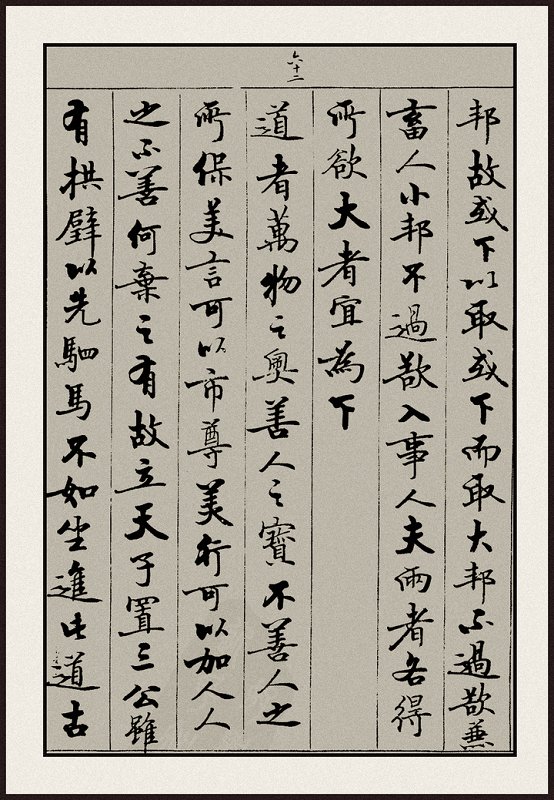 邦故或下以取或下而取大邦不過欲兼
畜人小邦不過欲入事人夫兩者各得
所欲大者宜為下
六十二
道者萬物之奧善人之寶不善人之
所保美言可以市尊美行可以加人人
之不善何棄之有故立天子置三公雖
有拱璧以先駟馬不如坐進此道古